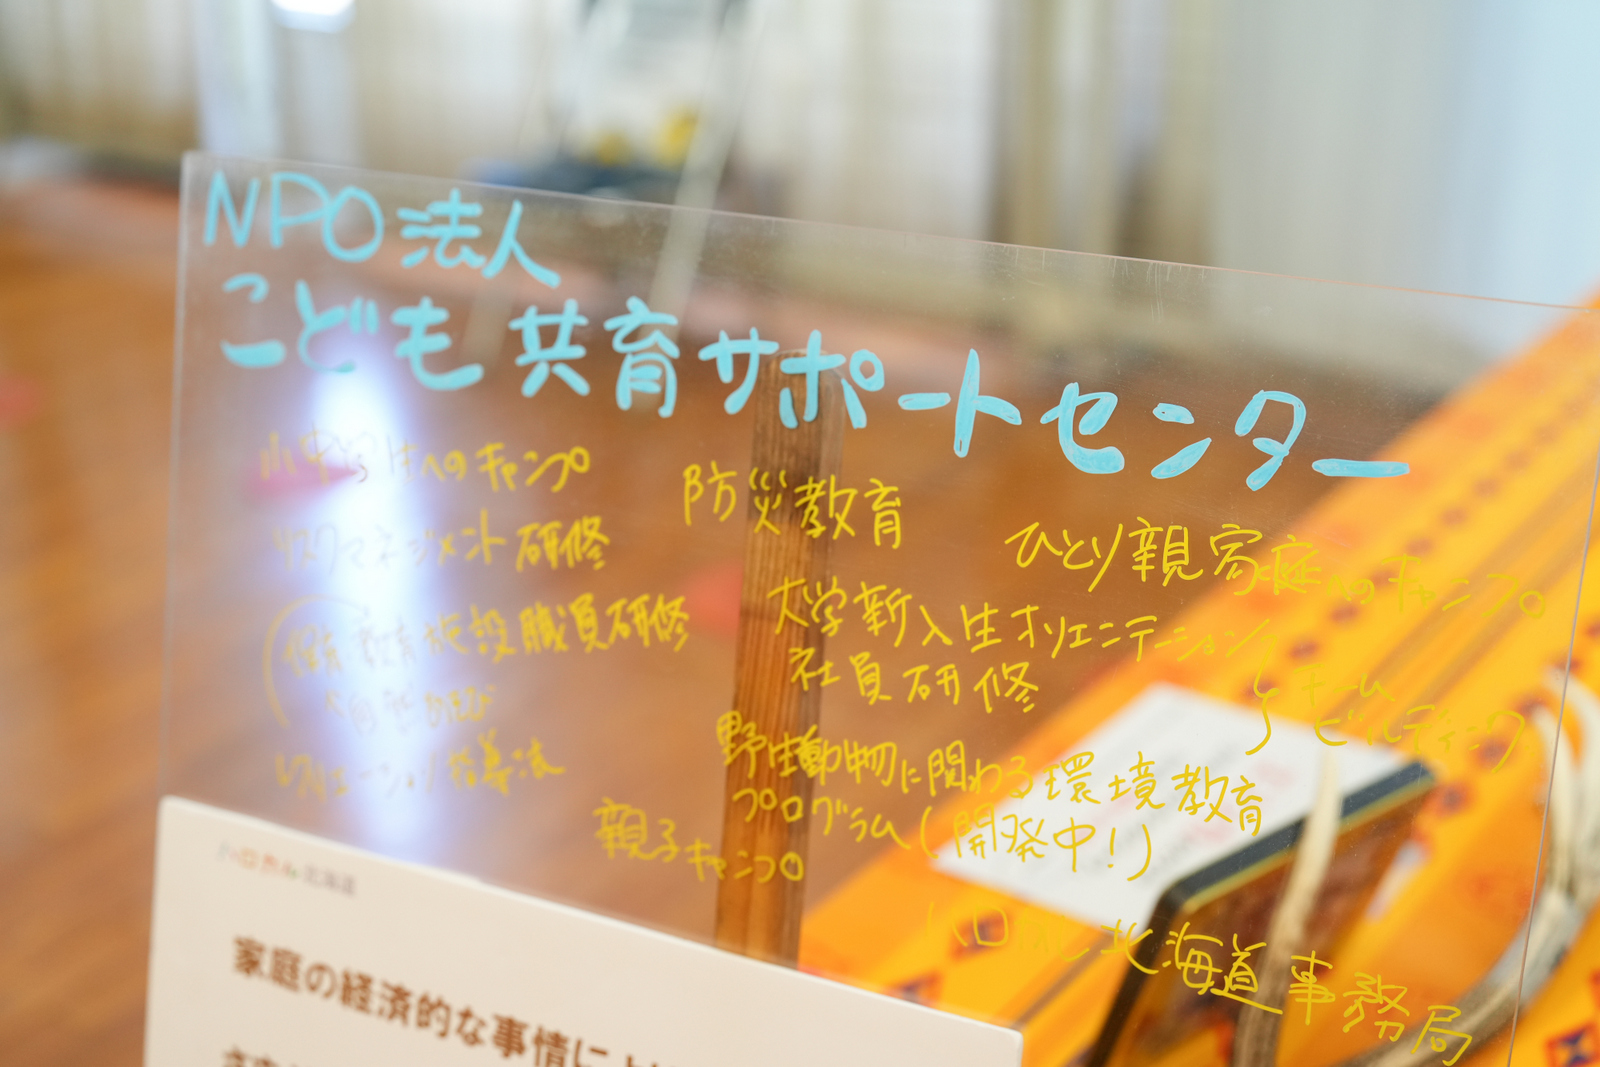 NPO法人
こども共育サポートセンター
小中学生へのキャンプ
リスクマネジメント研修
保育 教育施設職員研修
大自然あそび
レクリエーション指導法
防災教育
ひとり親家庭へのキャンプ
大学新入生オリエンテーション
社員研修
チーム
ビルディング
野生動物に関わる環境教育
プログラム(開発中!)
親子キャンプ
北海道事務局
北海道
家庭の経済的な事情によ